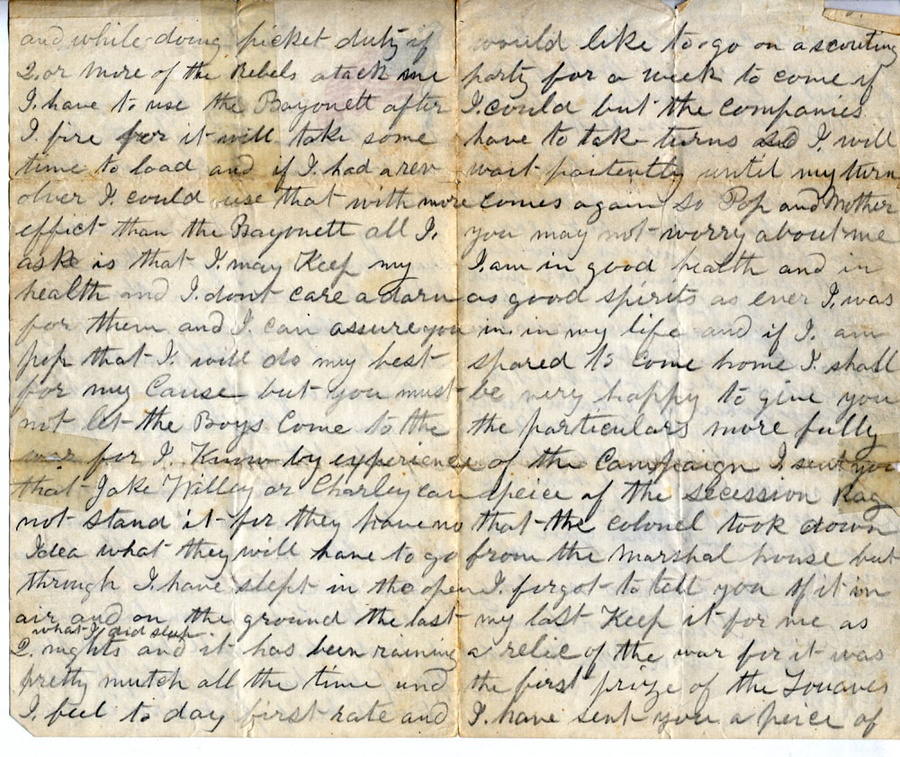 and while doing picket duty if
2. or more of the Rebels atack me
I. have to use the Bayonett after
I fire for it will take some
time to load and if I. had a rev
olver I. could use that with more
effict than the Bayonett all I.
aske is that I. may Keep my
health and I. dont care a darn
for them and I. can assure you
pop that I. will do my best
for my Cause but you must
not let the Boys Come to the
war for I. Know by experience
that Jake Willey or Charley can
not stand it for they have no
Idea what they will have to go
through I. have slept in the open
air and on the ground the last
what I did sleep.
2. nights and it has been raining
pretty mutch all the time and
I. feel to day first rate and
would like to go on a scouting
party for a week to come if
I. could but the companies
have to take turns so I. will
wait paitently until my turn
comes again So Pop and Mother
you may not worry about me
I. am in good health and in
as good spirits as ever I. was
in in my life and if I. am
spared to come home I. shall
be very happy to give you
the particulars more fully
of the Campaign I sent you
a peice of the secession Rag
that the colonel took down
from the Marshal house but
I. forgot to tell you of it in
my last Keep it for me as
a relic of the war for it was
the first prize of the Zouaves
I. have sent you a peice of